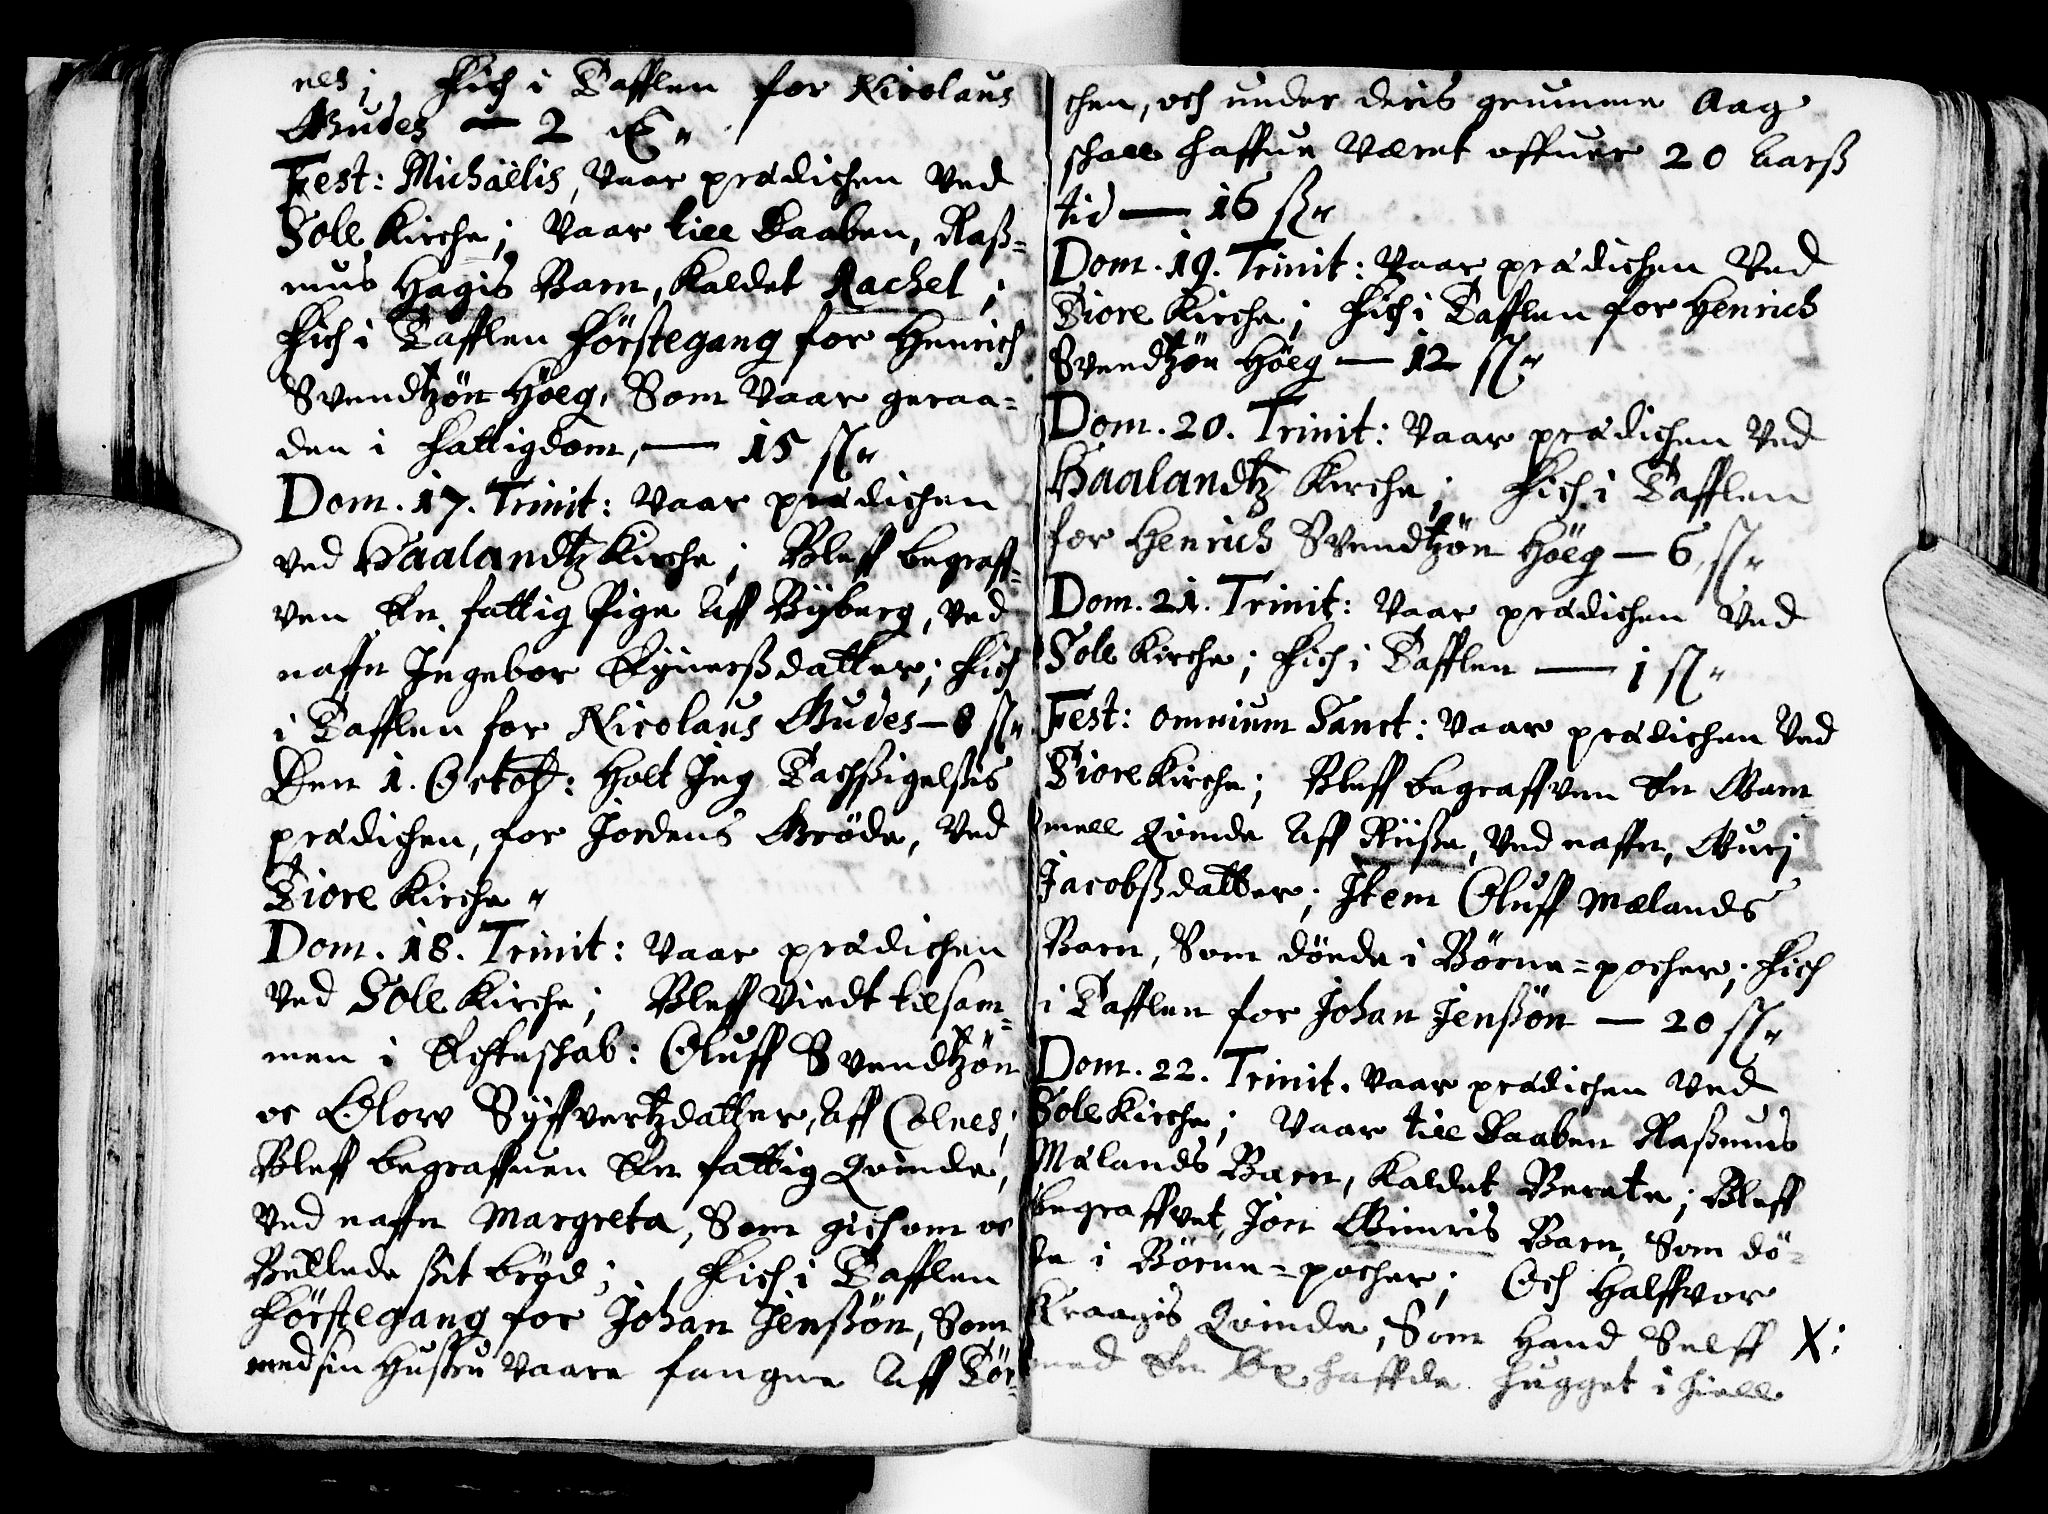 nes; Fich i Tafflen for Nicolaus
Gudes — 2 
Fest: Michaëlis, Vaar prædichen Ved
Sole Kirche; Vaar till Daaben, Raß=
mus Hagis Barn, Kaldet Rachel;
Fich i Tafflen Förstegang for Henrich
Svendtzön Höeg, Som Vaar geraa=
den i Fattigdom, — 15 ß
Dom. 17. Trinit: Vaar prædichen
ved Haalandtz Kirche; Bleff begraff=
ven En fattig Pige Aff Byberg, Ved
naffn Ingebor Eyversdatter; Fich
i Tafflen for Nicolaus Gudes — 8 ß
Den 1. Octob: Holt Jeg Tachsigelsis
prædichen, for Jordens Gröde, Ved
Tiore Kirche
Dom. 18. Trinit: Vaar prædichen
Ved Sole Kirche; Bleff Viedt tilsam=
men i Echteskab: Oluff Svendtzön
oc Olow Syffvertzdatter, Aff Colnes;
Bleff begraffuen En fattig Qvinde,
Ved naffn Margreta, Som gich om oc
Betlede sit bröd; Fich i Tafflen
Förstegang for Johan Jenßön, Som
med sin Hustru Vaare fangne Aff Tör=
chen, och under deris grumme Aag
schall haffue Været offuer 20 Aarß
tid — 16 ß
Dom. 19. Trinit: Vaar prædichen Ved
Tiore Kirche; Fich i Tafflen for Henrich
Svendtzön Höeg — 12 ß
Dom. 20. Trinit: Vaar prædichen Ved
Haalandtz Kirche; Fich i Tafflen
for Henrich Svendtzön Höeg — 6 ß
Dom. 21. Trinit: Vaar prædichen Ved
Sole Kirche; Fich i Tafflen — 1 ß
Fest: omnium Sanct: Vaar prædichen Ved
Tiore Kirche; Bleff begraffven En Gam=
mell Qvinde Aff Riiße, Ved naffn, Gurj
Jacobßdatter; Item Oluff Mælands
Barn, Som döede i Börne=pocher; Fich
i Tafflen for Johan Jenßön — 20 ß
Dom. 22. Trinit. Vaar prædichen Ved
Sole Kirche; Vaar till Daaben Raßmus
Mælands Barn, Kaldet Berete; Bleff
begraffvet, Jon Gimris Barn, Som dö=
de i Börne=pocher; Och Halffvor
Kraagis Qvinde, Som Hand Selff X:
med En Öxe haffde hugget i hiell